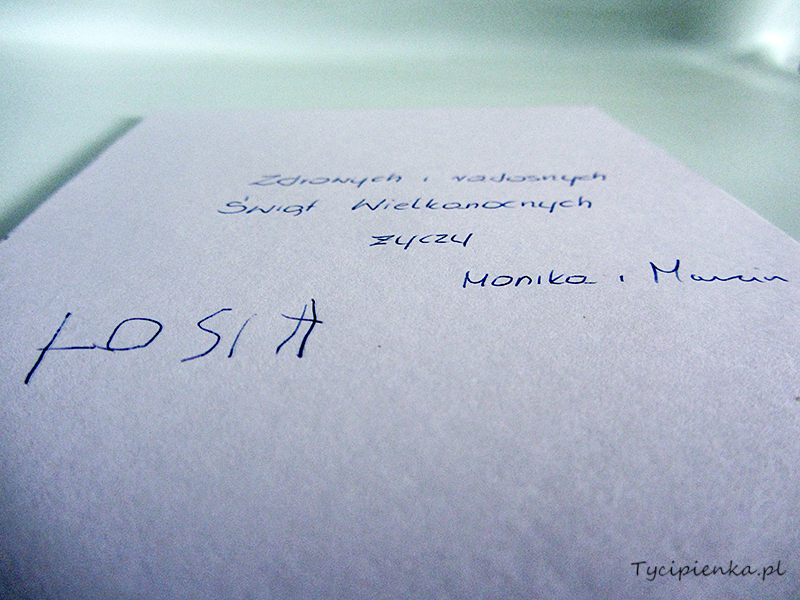 Zdrowych i radosnych
Świąt Wielkanocnych
życzy
Monika i Marcin
ŁOSIA
Tycipienka.pl